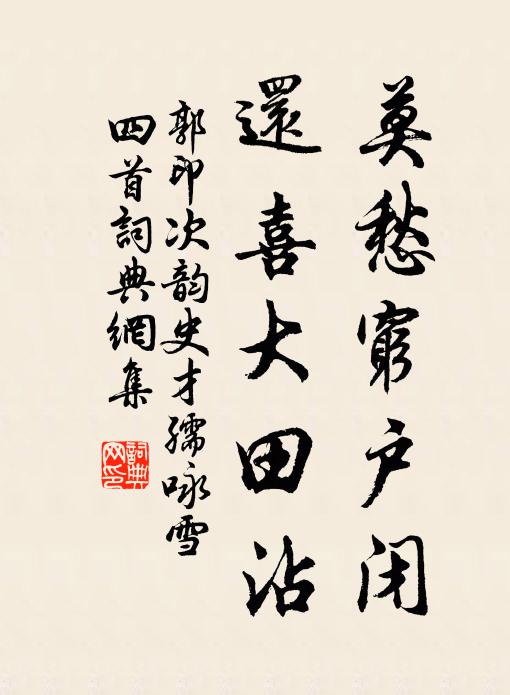 莫愁窮户閉
還喜大田沾
郭印次韵史才孺咏雪
四首詞典網集
詞典網印